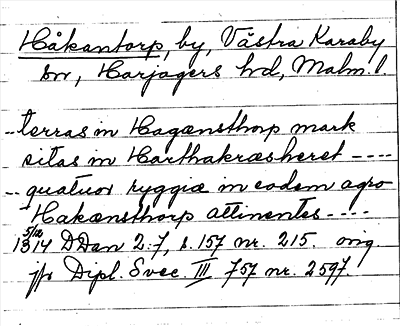 Håkantorp, by, Västra Karaby
sn, Harjagers hd, Malm. l.
--terras in Hagænsthorp mark
sitas in Harthakræsheret ----
-- quatuor ryggiæ in eodem agro
Hakænsthorp attinentes ----
5/12
1314 DDan 2:7, s. 157 nr. 215. orig.
jfr Dipl. Svec. III 757 nr. 2597